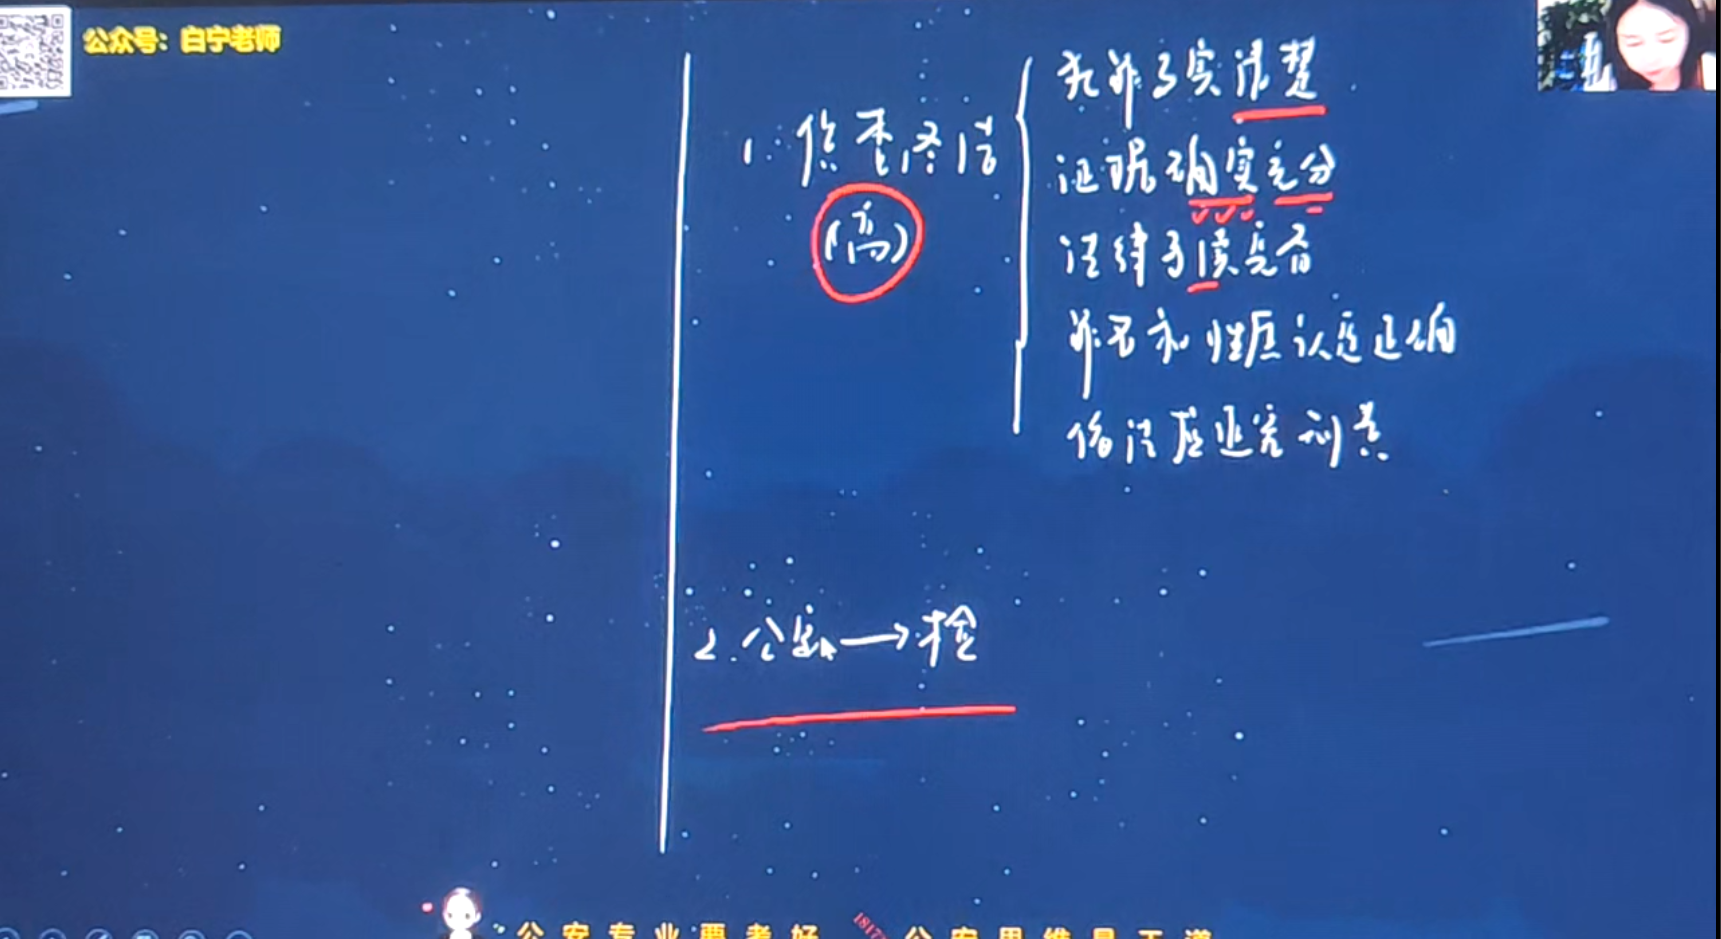 公众号：白宁老师
1. 侦查终结
(高)
犯罪事实清楚
证据确实充分
法律手续完备
罪名和性质认定正确
依法应追究刑责
2. 公安→检
公安专业要考好
公安思维是王道